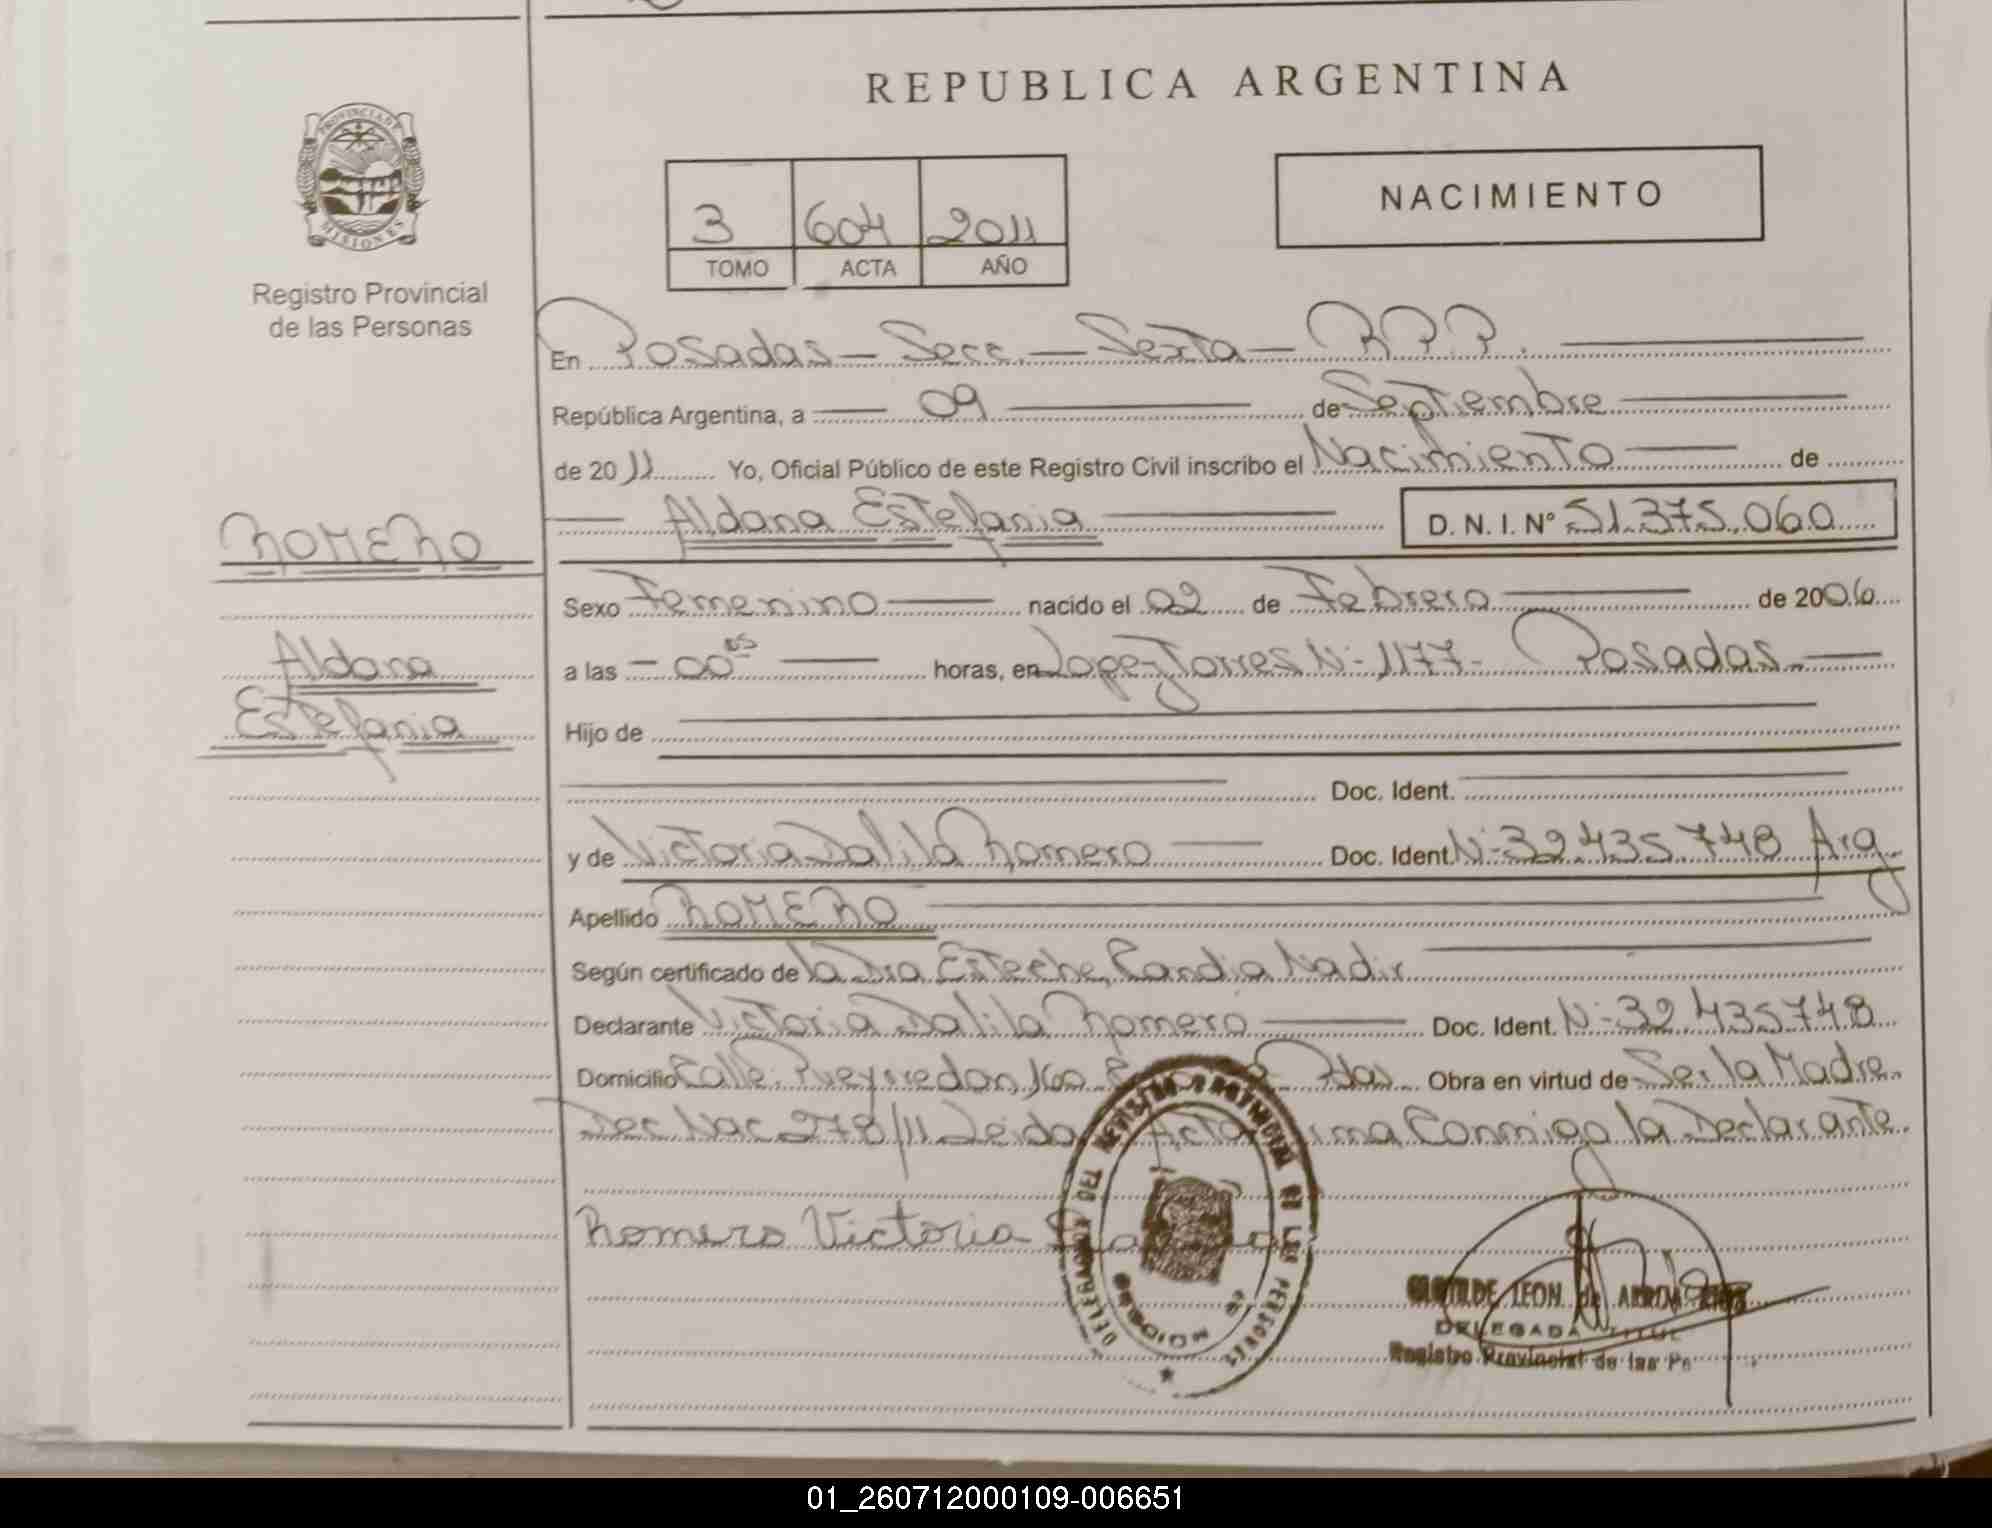 REPUBLICA ARGENTINA
PROVINCIA DE
MISIONES
Registro Provincial
de las Personas
3 604 2011
TOMO ACTA AÑO
NACIMIENTO
En Posadas - Secc. - Sexta - R.P.P.
República Argentina, a 09 de Septiembre
de 2011 Yo, Oficial Público de este Registro Civil inscribo el Nacimiento de
Aldana Estefania D. N. I. Nº 51.375.060
ROMERO
Aldana
Estefania
Sexo Femenino nacido el 02 de Febrero de 2006
a las - 00 05 horas, en Lope Torres N- 1177- Posadas
Hijo de
Doc. Ident.
y de Victoria Dalila Romero Doc. Ident. N- 32.435.748 Arg
Apellido ROMERO
Según certificado de la Dra Esteche, Candia Nadir
Declarante Victoria Dalila Romero Doc. Ident. N- 32.435748
Domicilio Calle Pueyrredon Pdas Obra en virtud de Ser la Madre
Dec Nac 278/11 Leida Acta Conmigo la Declarante
Romero Victoria
DELEGACION DEL REGISTRO PROVINCIAL DE LAS PERSONAS
MISIONES
CLOTILDE LEON de
DELEGADA TITUL
Registro Provincial de las Pe
01_260712000109-006651